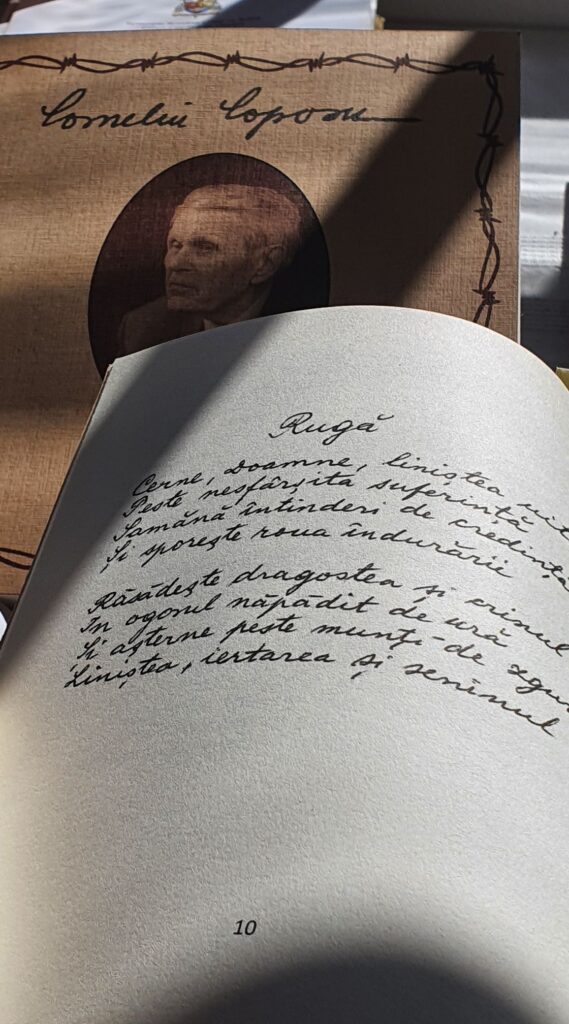 Corneliu Coposu
Rugă
Cerne, Doamne, liniștea
Peste nesfârșita suferință
Samănă întinderi de credință
Și sporește roua îndurării
Răsădește dragostea și crinul
În ogorul năpădit de ură
Și așterne peste munți de
Liniștea, iertarea și seninul
10